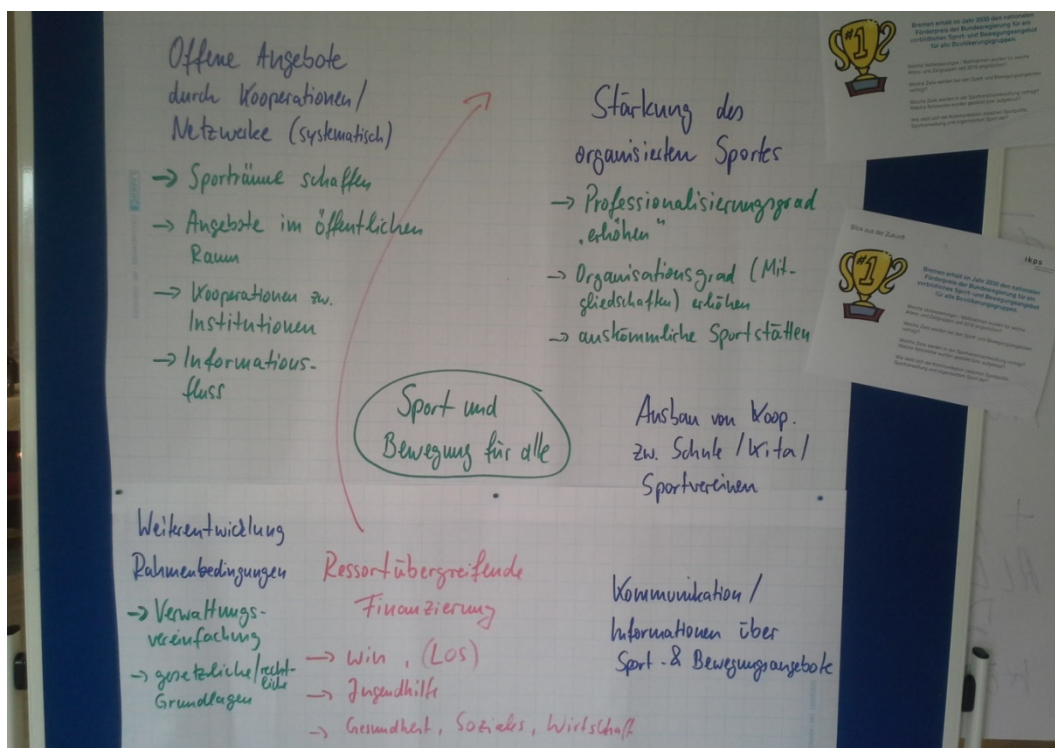 Offene Angebote
durch Kooperationen/
Netzwerke (systematisch)
→ Sporträume schaffen
→ Angebote im öffentlichen
Raum
→ Kooperationen zw.
Institutionen
→ Informations-
fluss
Stärkung des
organisierten Sportes
→ Professionalisierungsgrad
„erhöhen"
→ Organisationsgrad (Mit-
gliedschaften) erhöhen
→ auskömmliche Sportstätten
Sport und
Bewegung für alle
Ausbau von Koop.
zw. Schule / Kita /
Sportvereinen
Weiterentwicklung
Rahmenbedingungen
→ Verwaltungs-
vereinfachung
→ gesetzliche/recht-
liche
Grundlagen
Ressortübergreifende
Finanzierung
→ Win, (LOS)
→ Jugendhilfe
→ Gesundheit, Soziales, Wirtschaft
Kommunikation /
Informationen über
Sport- & Bewegungsangebote
#1
Bremen erhält im Jahr 2030 den nationalen
Förderpreis der Bundesregierung für ein
vorbildliches Sport- und Bewegungsangebot
für alle Bevölkerungsgruppen.
Blick aus der Zukunft
ikps
#1
Bremen erhält im Jahr 2030 den nationalen
Förderpreis der Bundesregierung für ein
vorbildliches Sport- und Bewegungsangebot
für alle Bevölkerungsgruppen.